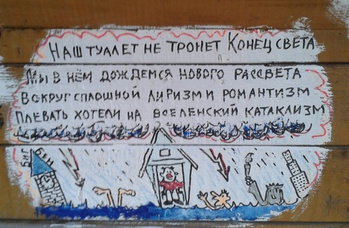 Наш туалет не тронет Конец света
Мы в нём дождемся нового рассвета
Вокруг сплошной лиризм и романтизм
Плевать хотели на вселенский катаклизм